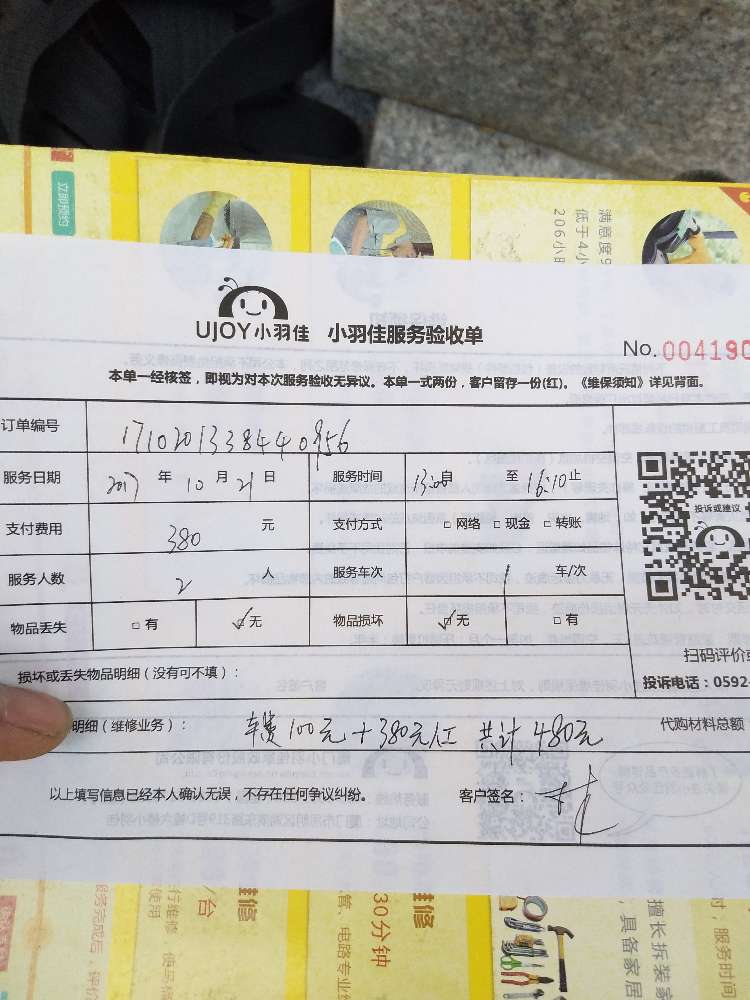 立即预约
满意度9
低于4小
206小时
UJOY小羽佳 小羽佳服务验收单
No. 004190
本单一经核签，即视为对本次服务验收无异议。本单一式两份，客户留存一份(红)。《维保须知》详见背面。
订单编号 17102013384440956
服务日期 2017 年 10 月 21 日 服务时间 13:00自 至 16:10止
支付费用 380 元 支付方式 □ 网络 □ 现金 □ 转账
服务人数 2 人 服务车次 1 车/次
物品丢失 □ 有 ☑ 无 物品损坏 ☑ 无 □ 有
投诉或建议
扫码评价或
投诉电话：0592-
损坏或丢失物品明细（没有可不填）：
明细（维修业务）： 车费100元+380元人工 共计480元 代购材料总额
以上填写信息已经本人确认无误，不存在任何争议纠纷。 客户签名：
服务完成后，评价
/台
维修
30分钟
管、电路专业维
维修
擅长拆装家
，具备家居
时；服务时间